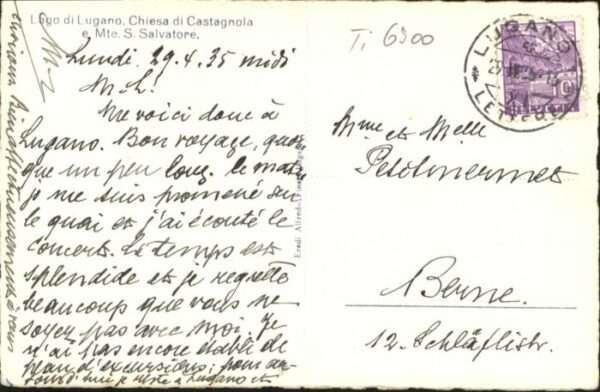 Lago di Lugano, Chiesa di Castagnola
e Mte. S. Salvatore.
Lundi 29.4.35 midi
M. L!
Me voici donc à
Lugano. Bon voyage, quoi-
que un peu long. Le matin
je me suis promené sur
le quai et j'ai écouté le
concert. Le temps est
splendide et je regrette
beaucoup que vous ne
soyez pas avec moi. Je
n'ai pas encore établi de
plan d'excursions; pour au-
jourd'hui je reste à Lugano et
Ti 6900
LUGANO
LETTERE
10
Mme et Melle
Petitmermet
Berne.
12. Schläflistr.